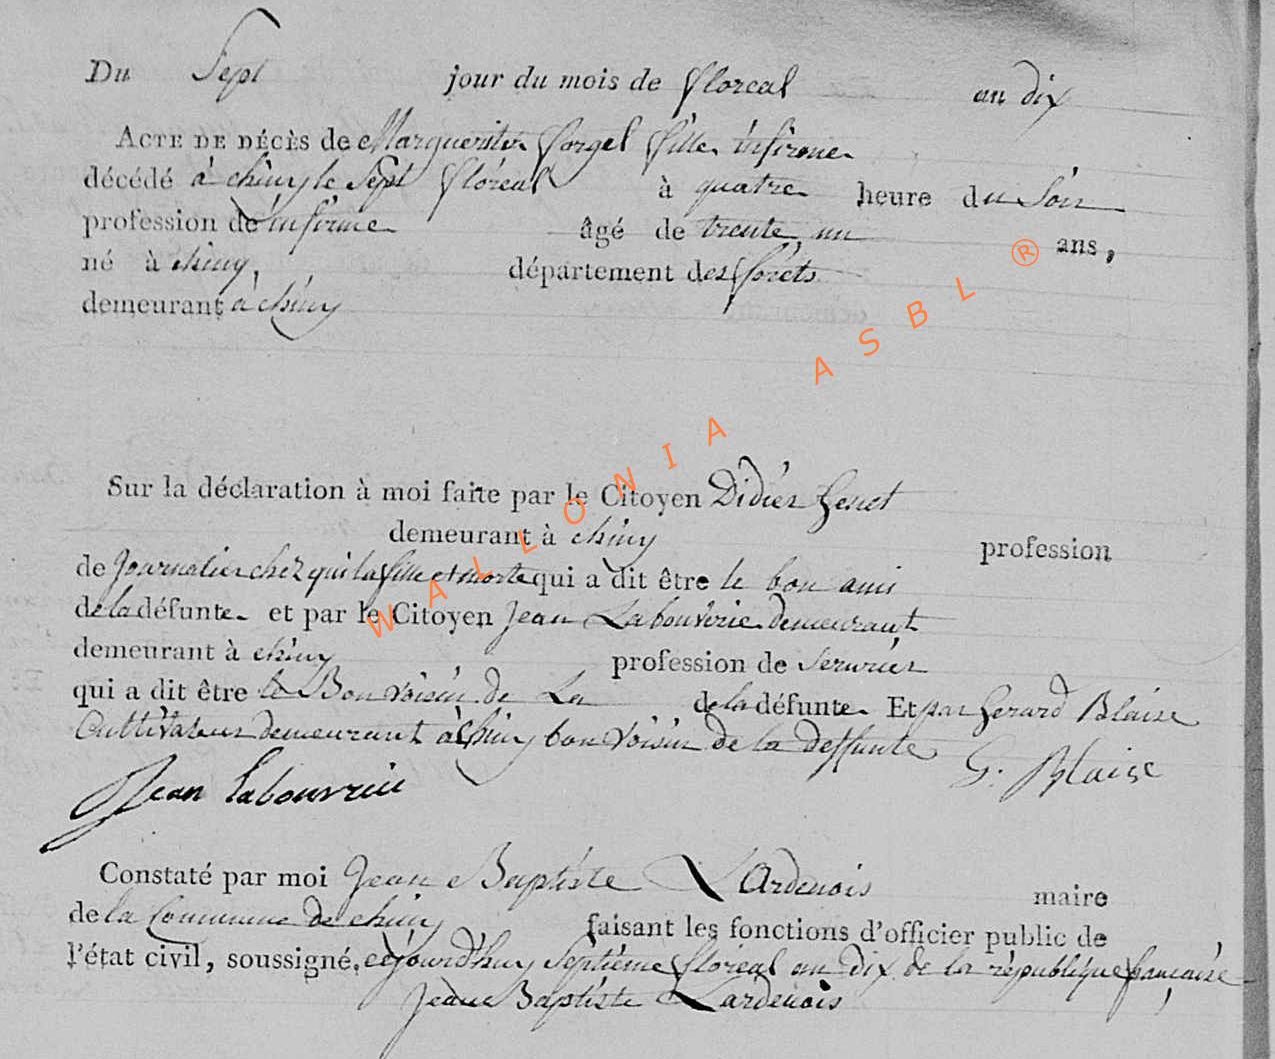 Du Sept jour du mois de floreal an dix
ACTE DE DÉCÈS de Marguerite forgel fille infirme
décédé à chiny le Sept floréal à quatre heure du Soir
profession de infirme âgé de trente un ans,
né à chiny, département des forets
demeurant à chiny
Sur la déclaration à moi faite par le Citoyen Didier Genet
demeurant à chiny profession
de Journalier chez qui la fille et morte qui a dit être le bon ami
de la défunte. et par le Citoyen Jean Labouverie demeurant
demeurant à chiny profession de serurier
qui a dit être le Bon voisin de La de la défunte. Et par Gerard Blaise
Cultivateur demeurant à Chiny bon voisin de la deffunte
G. Blaise
Jean Labouvrie
Constaté par moi Jean Baptiste LArdenois maire
de la Commune de chiny faisant les fonctions d'officier public de
l'état civil, soussigné, cejourd'huy Septième floreal an dix de la république francaise
Jean Baptiste Lardenois
WALLONIA ASBL ®